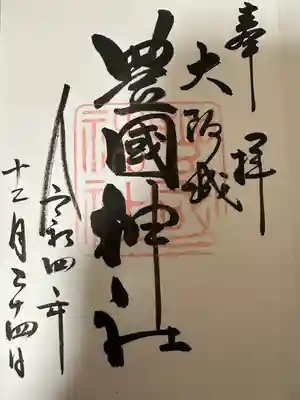 奉拝
大阪城
豊國神社
令和四年
十二月三十四日